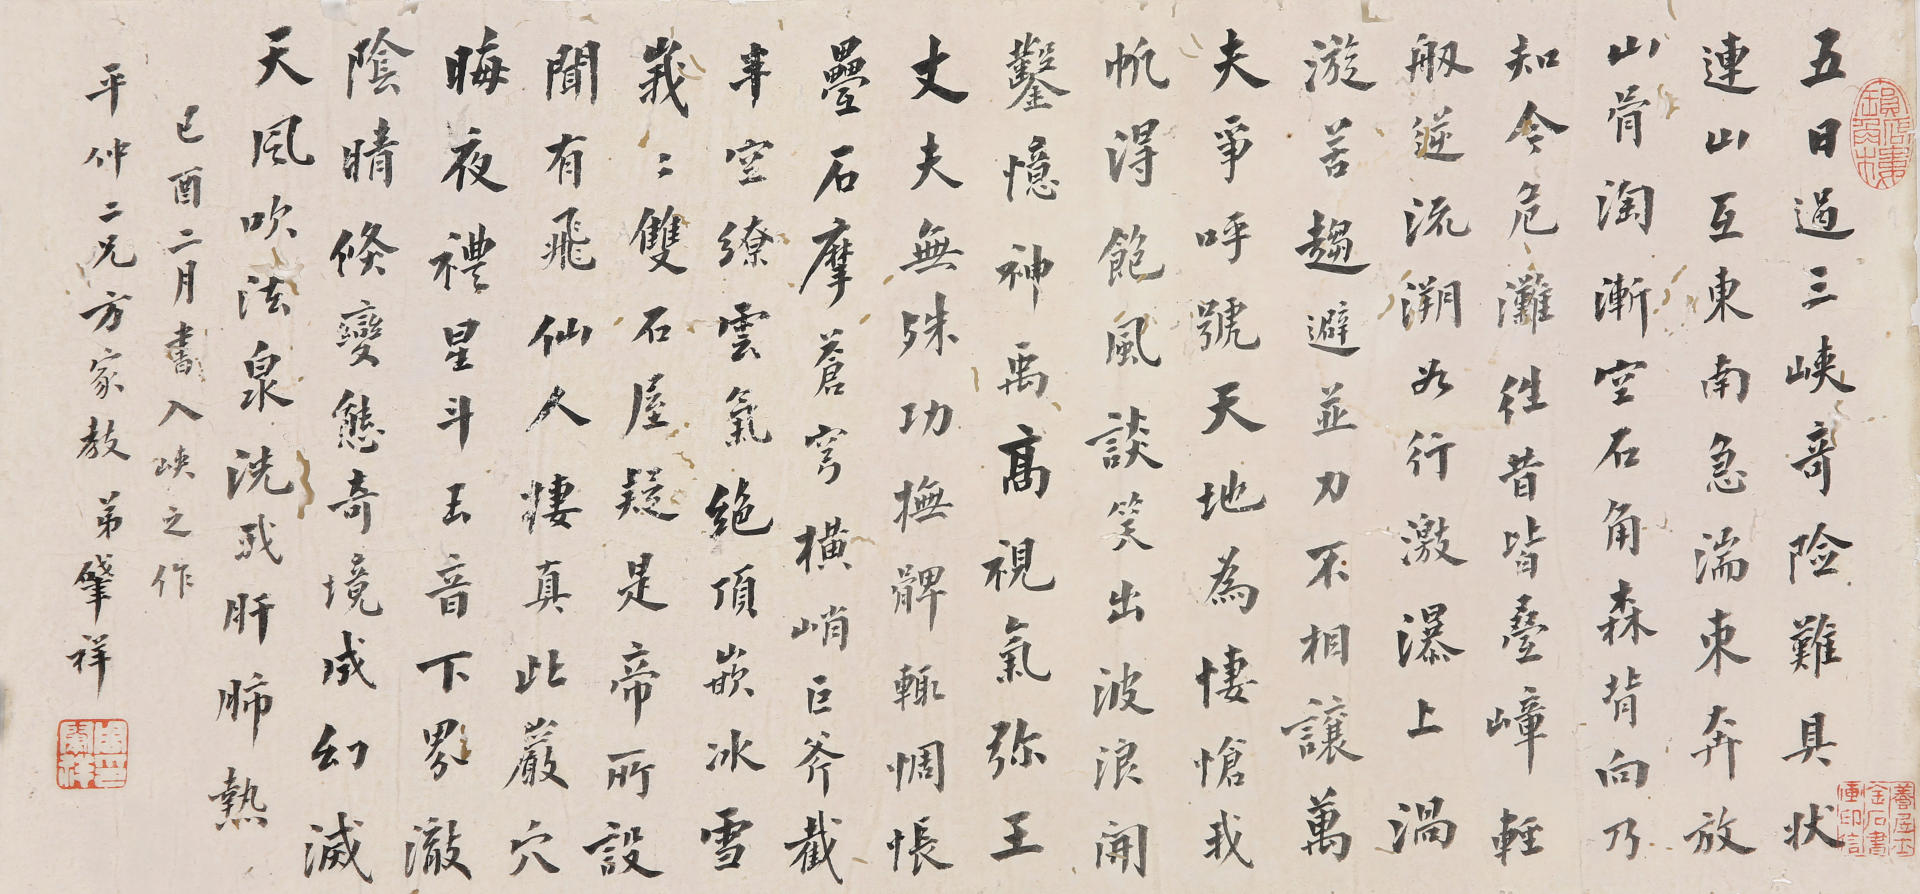 五日過三峽奇險難具狀
連山互東南急湍束奔放
山骨淘漸空石角森背向乃
知今危灘往昔皆疊嶂輕
舠逆流溯如行激瀑上渦
漩苦趨避並力不相讓萬
夫爭呼號天地為悽愴我
帆得飽風談笑出波浪開
鑿憶神禹高視氣弥王
丈夫無殊功撫髀輒惆悵
疊石摩蒼穹橫峭巨斧截
半空繚雲氣絕頂嵌冰雪
峩〻雙石屋疑是帝所設
聞有飛仙人棲真此巖穴
晦夜禮星斗玉音下界澈
陰晴倏變態奇境咸幻滅
天風吹法泉洗我肝肺熱
己酉二月書入峽之作
平仲二兄方家教 弟肇祥